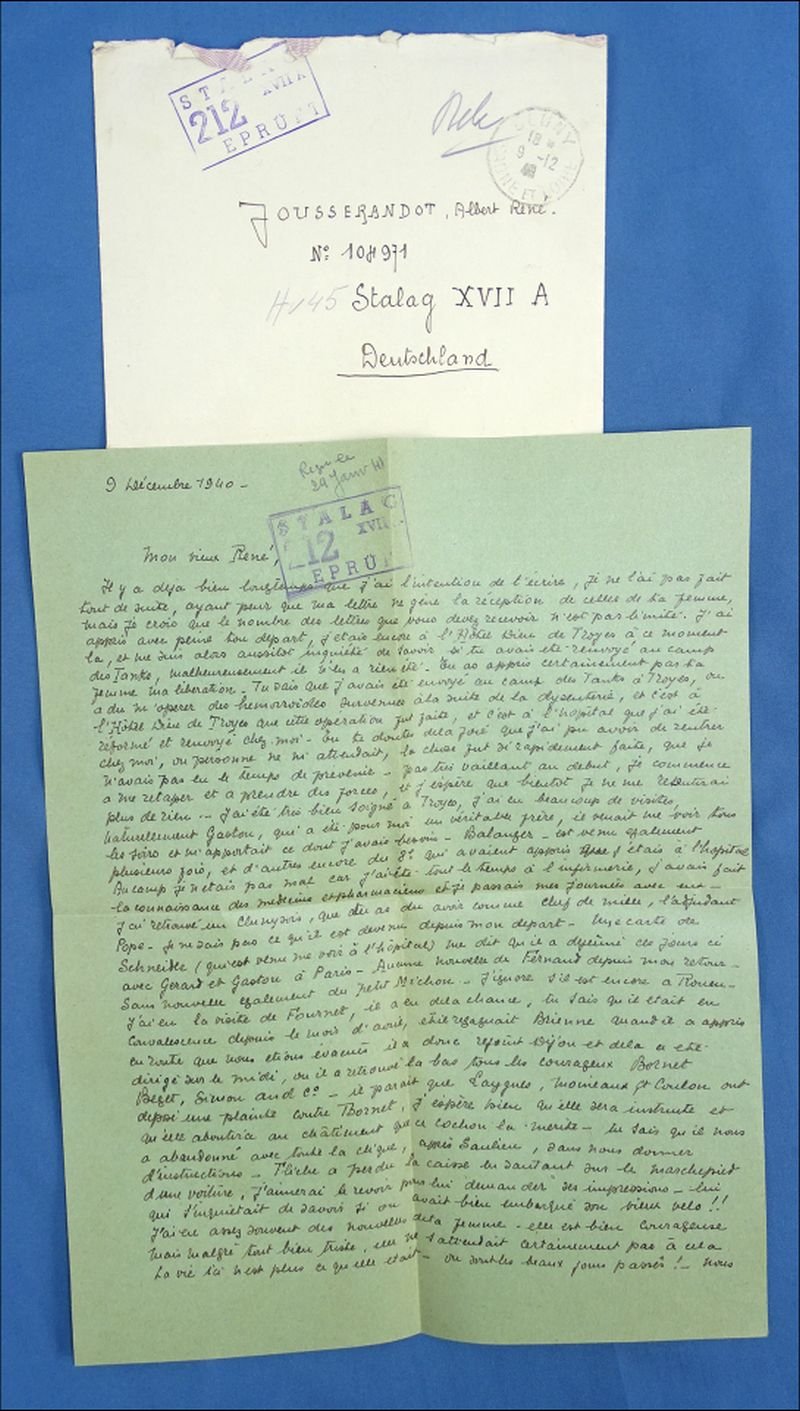 STALAG XVII A
212
GEPRÜFT
CLUNY
18 *
9 -12
SAONE ET LOIRE
JOUSSERANDOT, Albert René.
N° 108971
H/45 Stalag XVII A
Deutschland
9 Décembre 1940 -
Reçu le
29 Janv 41
STALAG XVII
212
GEPRÜFT
Mon vieux René,
Il y a deja bien longtemps que j'ai l'intention de t'écrire, je ne l'ai pas fait
tout de suite, ayant peur que ma lettre ne gène la réception de celles de ta femme,
mais je crois que le nombre des lettres que vous devez recevoir n'est pas limité. J'ai
appris avec peine ton départ, j'etais encore à l'Hôtel Dieu de Troyes à ce moment
la, et me suis alors aussitôt inquiété de savoir si tu avais été renvoyé au camp
des Tanks, malheureusement il n'en a rien été. Tu as appris certainement pas ta
femme ma libération. Tu sais que j'avais été envoyé au camp des Tanks à Troyes, ou
a du m'operer des hemorroïdes survenues à la suite de la dysenterie, et c'est à
l'Hôtel Dieu de Troyes que cette opération fut faite, et c'est à l'hopital que j'ai été
réformé et renvoyé chez moi - Tu te doutes de la joie que j'ai pu avoir de rentrer
chez moi, ou personne ne m'attendait, la chose fut si rapidement faite, que je
n'avais pas eu le temps de prevenir - pas très vaillant au debut, je commence
a me retaper et a prendre des forces, et j'espère que bientot je ne me ressentirai
plus de rien... J'ai été très bien soigné à Troyes, j'ai eu beaucoup de visites,
naturellement Gaston, qui a été pour moi un véritable frère, il venait me voir tous
les soirs et m'apportait ce dont j'avais besoin - Balanger - est venu egalement
plusieurs fois, et d'autres encore du 8e qui avaient appris que j'etais à l'hopital
Au camp je n'etais pas mal car j'ai été tout le temps à l'infirmerie, j'avais fait
la connaissance des medecins et pharmaciens et je passais mes journées avec eux -
J'ai retrouvé un Clunysois, que tu as du avoir comme chef de mille, l'adjudant
Pope - Je ne sais pas ce qu'il est devenu depuis mon depart - Une carte de
Schneider (qui est venu me voir à l'hôpital) me dit qu'il a dejeuné ces jours ci
avec Gerard et Gaston à Paris - Aucune nouvelle de Fernand depuis mon retour -
Sans nouvelle egalement du petit Michon - J'ignore s'il est encore à Rouen -
J'ai eu la visite de Fournet, il a eu de la chance, tu sais qu'il etait en
convalescence depuis le mois d'avril, et il regagnait Brienne quand il a appris
en route que nous etions evacués il a donc rejoint Dijon et de la a été
dirigé sur le midi, ou il a retrouvé la bas tous les courageux Bornet
Beget, Simon and C° - il parait que Laygues, Momeaux et Coulon ont
deposé une plainte contre Bornet, j'espère bien qu'elle sera instruite et
qu'elle aboutira au châtiment que ce cochon la mérite - tu sais qu'il nous
a abandonné avec toute la clique, après Saulieu, sans nous donner
d'instructions - Flèche a perdu la caisse en sautant sur le marchepied
d'une voiture, j'aimerai le revoir pour lui demander ses impressions - lui
qui s'inquiétait de savoir si on avait bien embarqué son vieux velo !!
J'ai eu assez souvent des nouvelles de ta femme - elle est bien courageuse
mais malgré tout bien triste, elle ne s'attendait certainement pas à cela
La vie ici n'est plus ce qu'elle etait - ou sont les beaux jours passés ! - nous